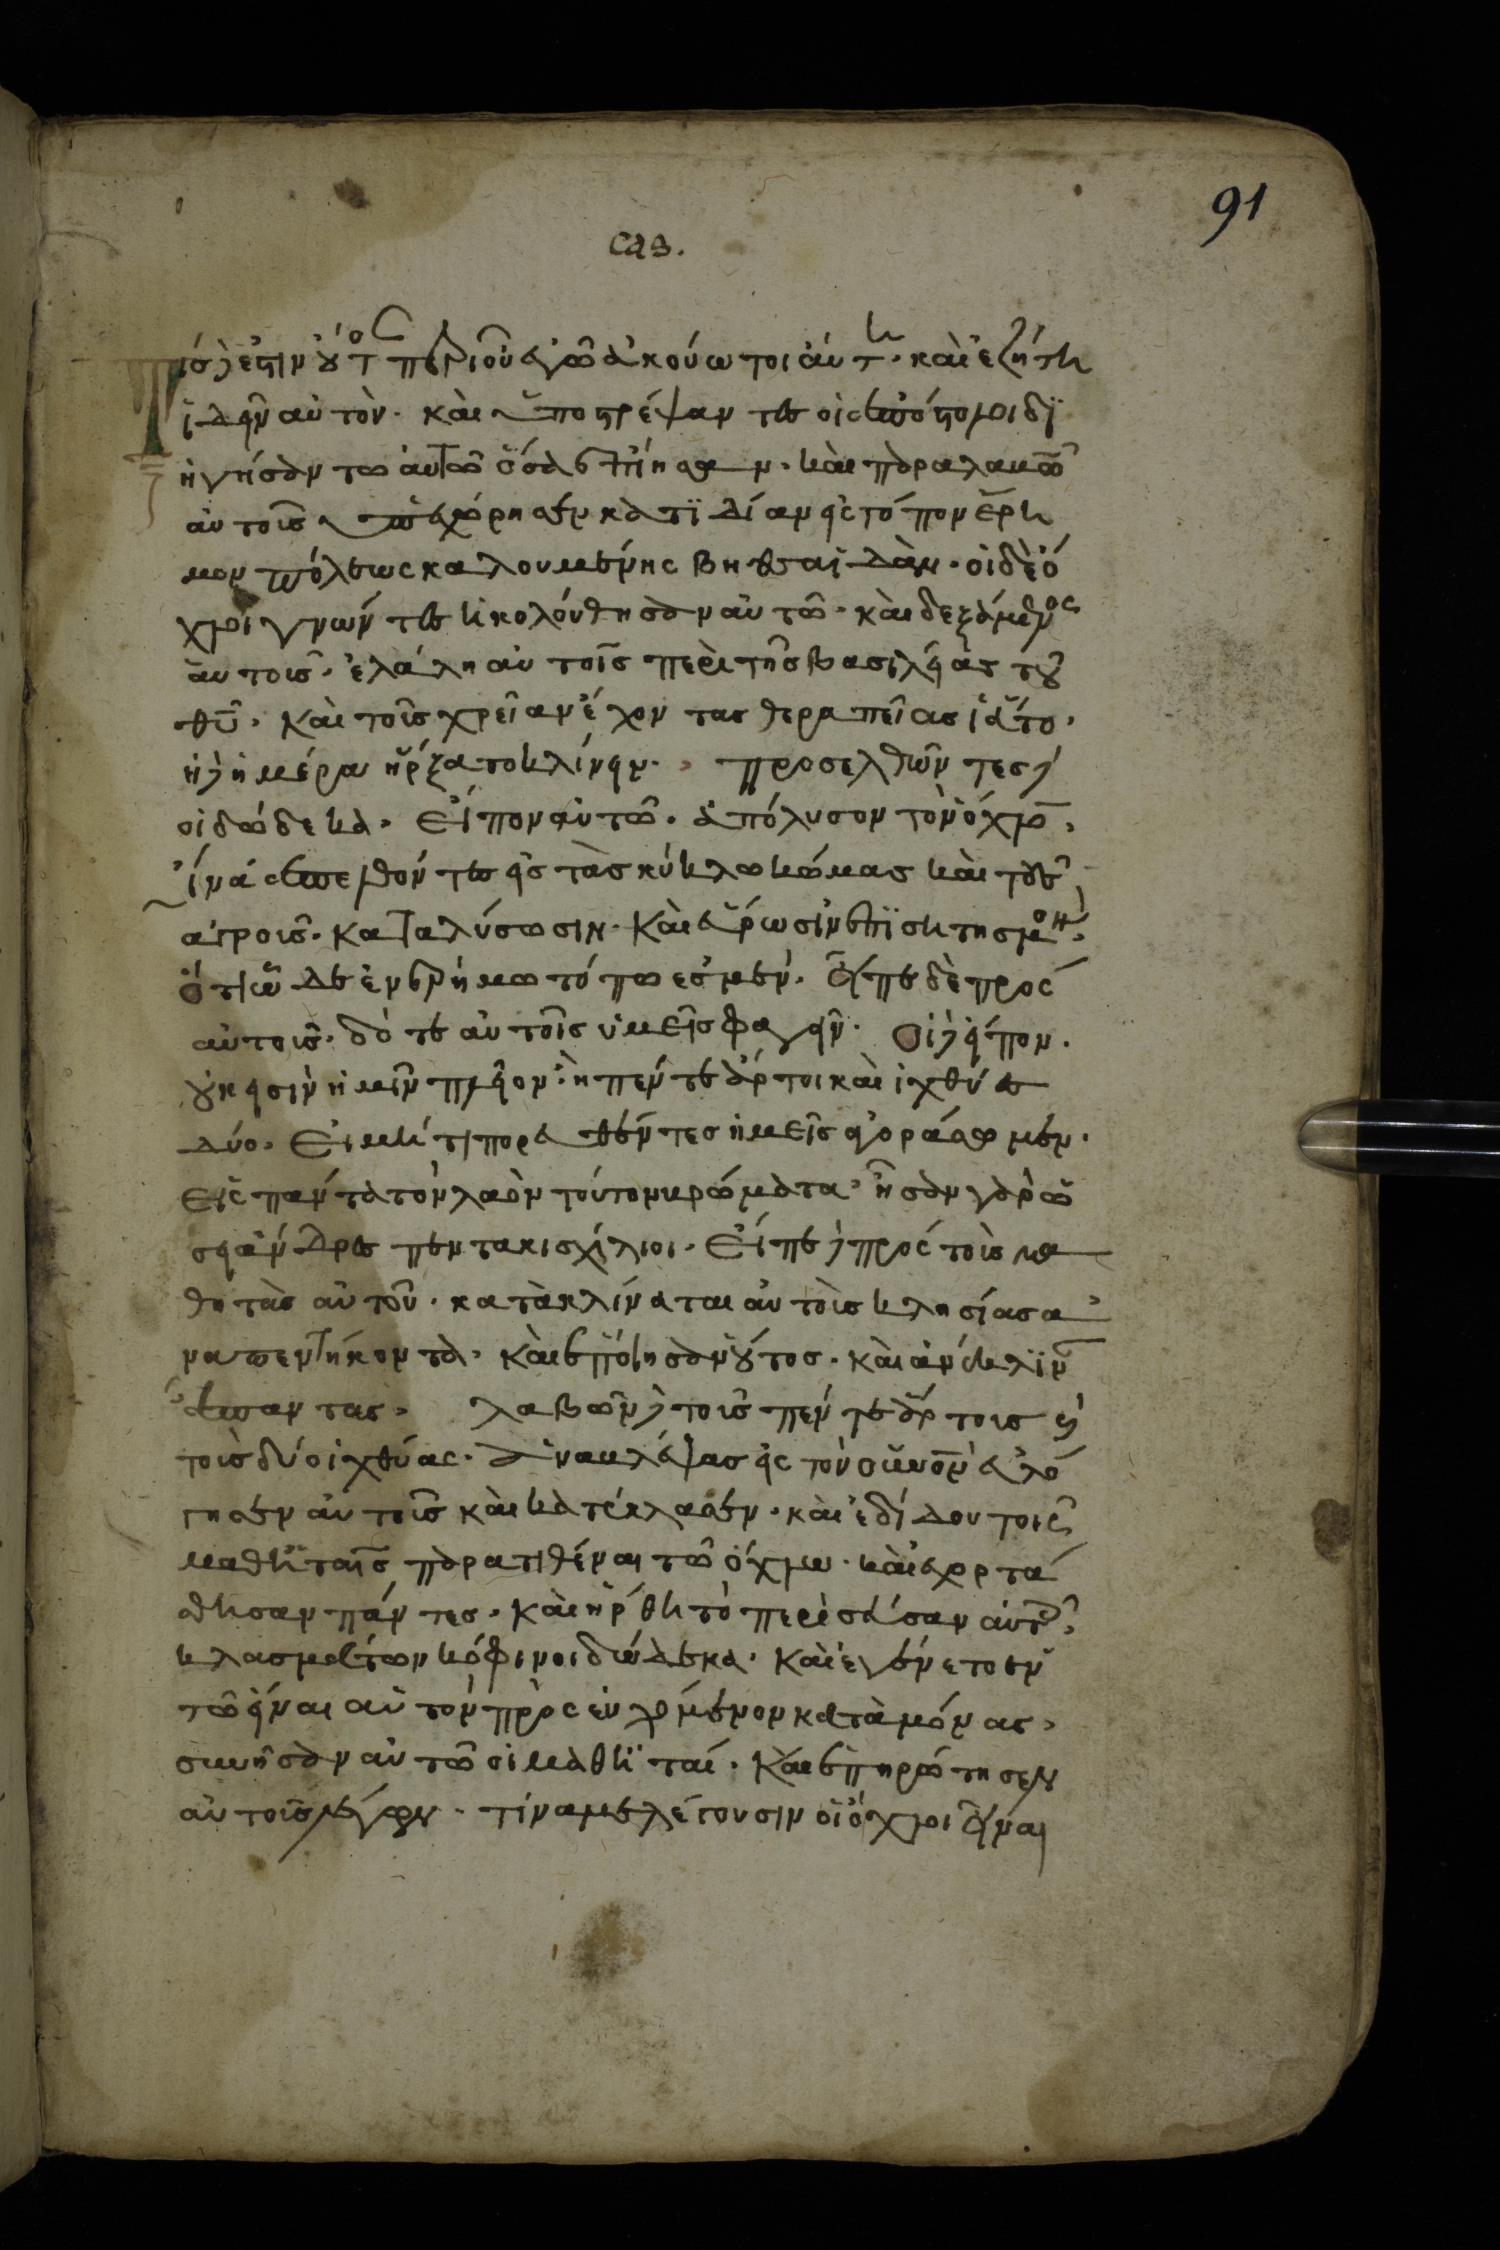 91
σαβ.
Τίς δὲ ἐστιν οὗτος περὶ οὗ ἐγὼ ἀκούω τοιαύτη. καὶ ἐζήτη
ἰδεῖν αὐτὸν. καὶ ὑποστρέψαντες οἱ ἀπόστολοι δϊ
ηγήσαν τω αὐτῶ ὅσα ἐποίησαν. καὶ παραλαβῶν
αὐτοῖς ὑπεχώρησεν κατϊδίαν εἰς τόπον ἔρη
μον πόλεως καλουμένης βηθσαϊδὰν. οἱ δὲ ὄ
χλοι γνώντες ἠκολούθησαν αὐτῶ. καὶ δεξάμενος
αὐτοῖς. ἐλάλη αὐτοῖς περὶ τῆς βασιλείας τοῦ
θῦ. καὶ τοῖς χρείαν ἔχοντας θεραπείας ἰᾶτο.
ἡ δὲ ἡμέρα ἤρξατο κλίνειν. προσελθῶντες δὲ
οἱ δώδεκα. εἶπον αὐτῶ. ἀπόλυσον τὸν ὄχλον,
ἵνα ἀπελθόντες εἰς τὰς κύκλω κώμας καὶ τοῖς
αγροῖς. καταλύσωσιν. καὶ εὕρωσιν ἐπϊσητησμόν,
ὅτι ὧδε ἐν ἐρήμω τόπω ἐσμέν. εἶπε δὲ πρὸς
αὐτοῖς. δότε αὐτοῖς ὑμεῖς φαγεῖν. οἱ δὲ εἶπον.
οὐκ εἰσὶν ἡμῖν πλεῖον ἢ πέντε ἄρτοι καὶ ἰχθύες
δύο. εἰ μή τι πορευθέντες ἡμεῖς ἀγοράσωμεν.
εἰς πάντα τὸν λαὸν τούτον βρώματα ἦσαν γὰρ ὡ
σεὶ άνδρες πεντακισχίλιοι. εἶπε δὲ πρὸς τοῖς μα
θητὰς αὐτοῦ. κατακλίναται αὐτοῖς κλησίας α
να πεντήκοντα. καὶ ἐποίησαν οὕτος. καὶ ἀνέκλϊναν
άπαντας. λαβῶν δὲ τοῖς πέντε ἄρτοις καὶ
τοῖς δύο ἰχθύας. ἀναβλέψας εἰς τὸν οὐνον εὐλό
γησεν αὐτοῖς καὶ κατέκλασεν. καὶ ἐδίδου τοῖς
μαθηταῖς παρατιθέναι τῶ ὄχλω. καὶ ἐχορτά
σθησαν πάντες. καὶ ἤρθη τὸ περὶσεύσαν αὐτοῖς,
κλασμάτων κόφινοι δώδεκα. καὶ ἐγένετο ἐν
τῶ εἶναι αὐτὸν πρὸς ευχόμενον κατὰ μόνας,
συνῆσαν αὐτῶ οἱ μαθηταί. καὶ ἐπηρώτησεν
αὐτοῖς λέγων. τίνα με λέγουσιν οἱ όχλοι εἶναι